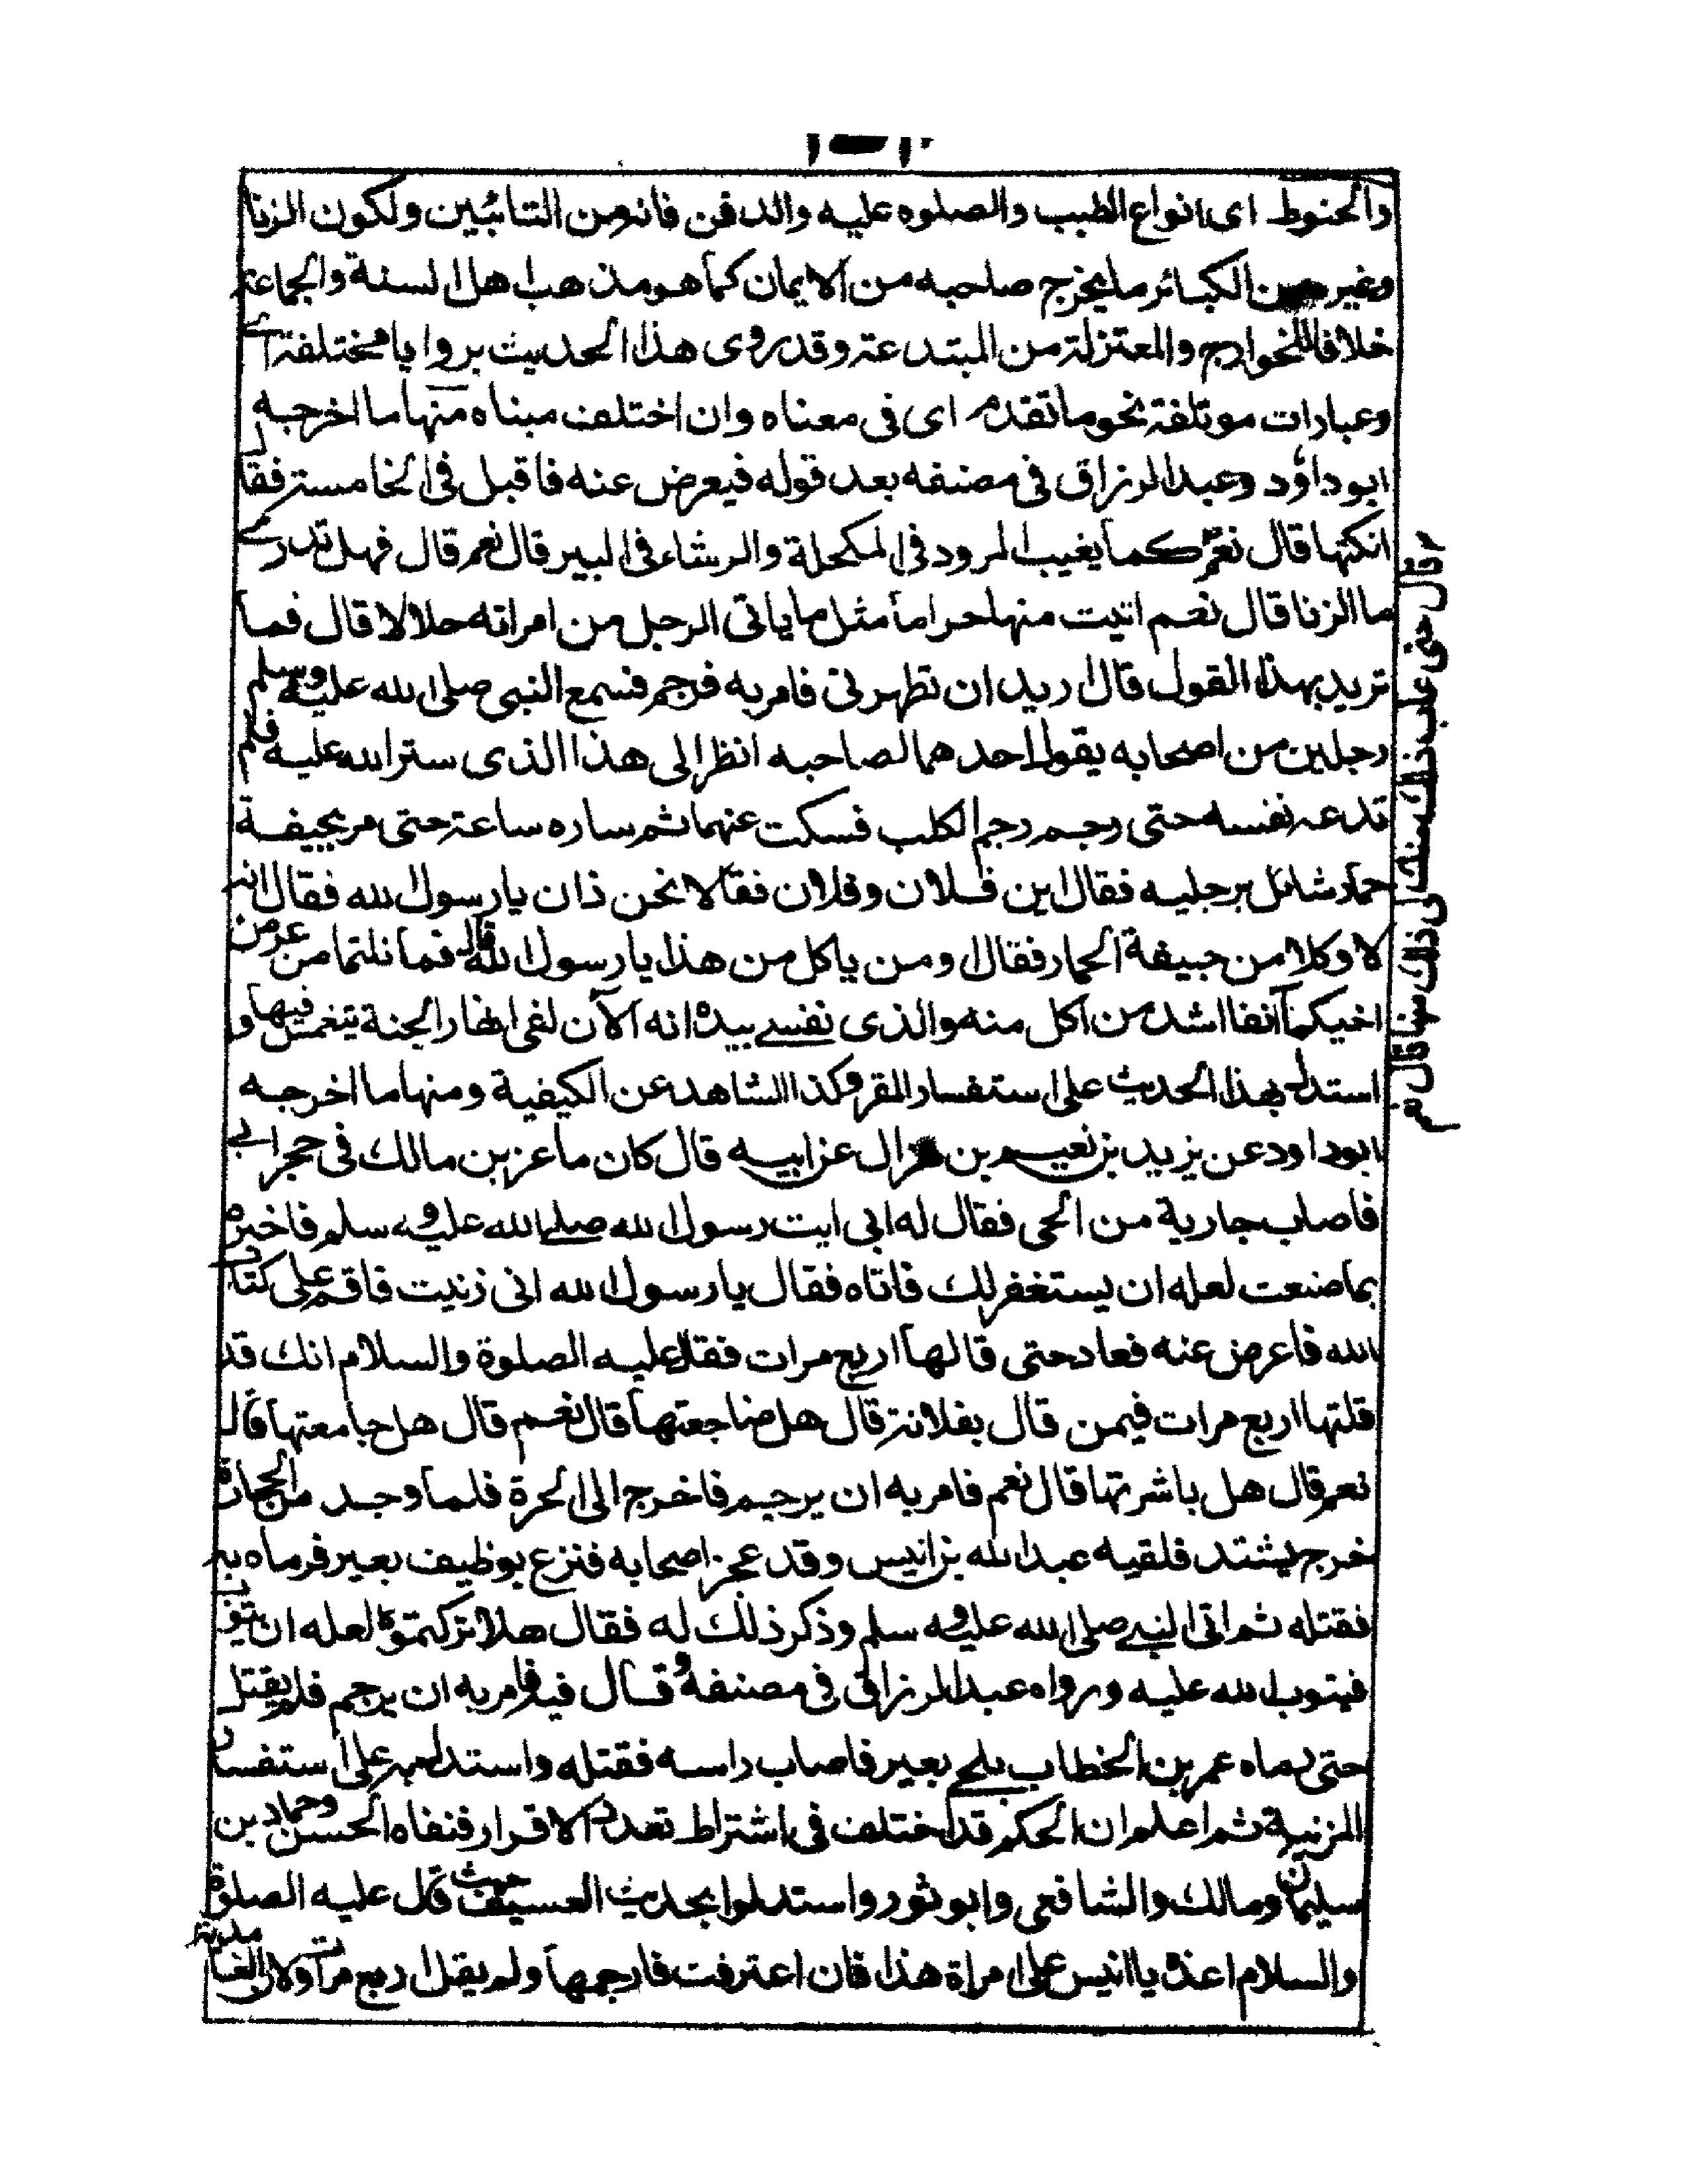 والحنوط اى انواع الطيب والصلوه عليه والدفن فانه من التائبين ولكون الزنا
وغيره من الكبائر ما يخرج صاحبه من الايمان كما هو مذهب اهل السنة والجماعة
خلافا للخوارج والمعتزلة من المبتدعة وقد روى هذا الحديث بروايا مختلفة اے
وعبارات موتلفة نحو ما تقدم اى فى معناه وان اختلف مبناه منها ما اخرجه
ابوداؤد وعبدالرزاق فى مصنفه بعد قوله فيعرض عنه فاقبل فى الخامسة فقال
انكتها قال نعم كما يغيب المرود فى المكحلة والرشاء فى البير قال نعم قال فهل تدرے
ما الزنا قال نعم اتيت منها حراما مثل ما ياتى الرجل من امراته حلالا قال فما
تريد بهذا القول قال اريد ان تطهرنى فامر به فرجم فسمع النبى صلى الله عليه وسلم
رجلين من اصحابه يقول احدهما لصاحبه انظر الى هذا الذى ستر الله عليه فلم
تدعه نفسه حتى رجم رجم الكلب فسكت عنهما ثم ساره ساعة حتى مر بجيفة
حمار شائل برجليه فقال اين فلان وفلان فقالا نحن ذان يارسول الله فقال انزلا
لا وكلا من جيفة الحمار فقال ومن ياكل من هذا يارسول الله قال فما نلتما من عرض
اخيكما آنفا اشد من اكل منه والذى نفسے بيده انه الآن لفى انهار الجنة يتغمس فيها و
استدل بهذا الحديث على استفسار المقر وكذا الشاهد عن الكيفية ومنها ما اخرجه
ابوداود عن يزيد بن نعيم بن هزال عن ابيه قال كان ماعز بن مالك فى حجر ابے
فاصاب جارية من الحى فقال له ابى ايت رسول الله صلے الله عليه وسلم فاخبره
بما صنعت لعله ان يستغفر لك فاتاه فقال يارسول الله انى زنيت فاقم على كتاب
الله فاعرض عنه فعاد حتى قالها اربع مرات فقال عليه الصلوة والسلام انك قد
قلتها اربع مرات فيمن قال بفلانة قال هل ضاجعتها قال نعم قال هل جامعتها قال
نعم قال هل باشرتها قال نعم فامر به ان يرجم فاخرج الى الحرة فلما وجد من الحجارة
خرج يشتد فلقيه عبدالله بن انيس وقد عجز اصحابه فنزع بوظيف بعير فرماه به
فقتله ثم اتى النبے صلى الله عليه وسلم وذكر ذلك له فقال هلا تركتموه لعله ان يتوب
فيتوب الله عليه ورواه عبدالرزاق فى مصنفه وقال فيه فامر به ان يرجم فلم يقتل
حتى رماه عمر بن الخطاب بلحے بعير فاصاب راسه فقتله واستدل به على استفسار
المزنية ثم اعلم ان الحكم قد اختلف فى اشتراط تعدد الاقرار فنفاه الحسن وحماد بن
سليمان ومالك والشافعى وابو ثور واستدلوا بحديث العسيف حيث قال عليه الصلوة
والسلام اغد يا انيس على امراة هذا فان اعترفت فارجمها ولم يقل اربع مرات ولان الغامدية
قال حتى غاب ذلك منك فى ذلك منها قال نعم